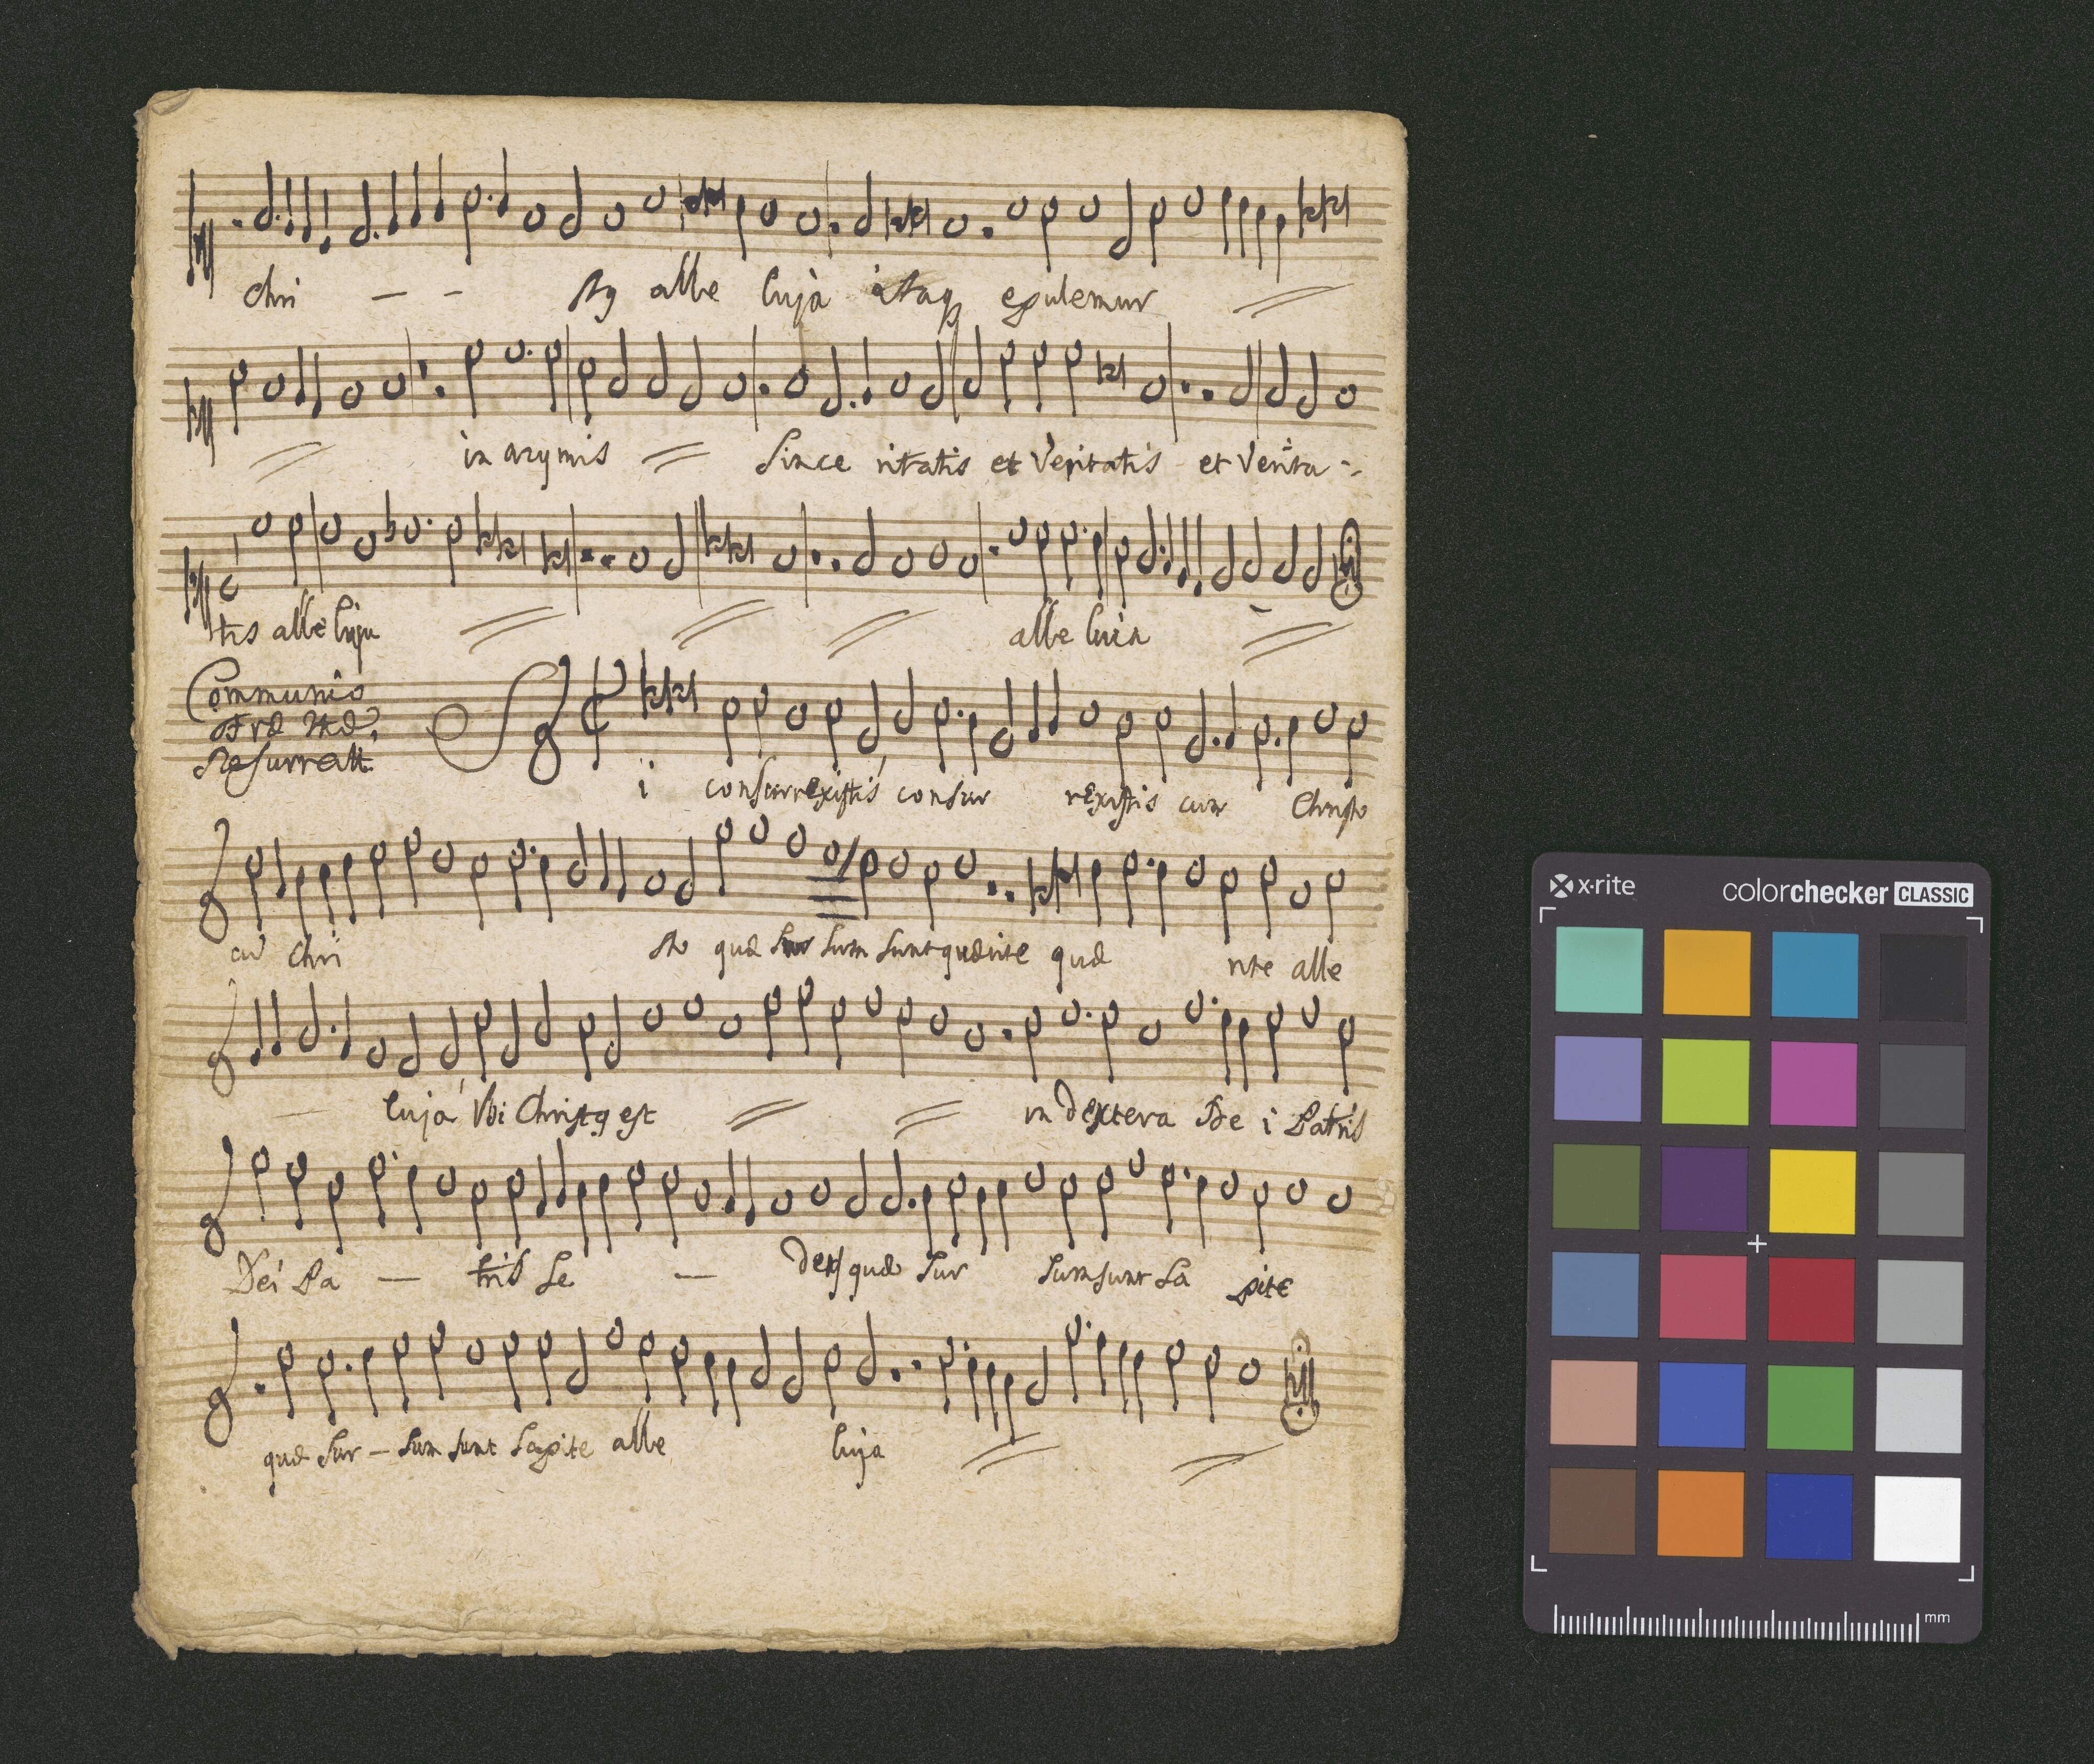 chri - - stq alle lujà itaq epulemur
in azymis Since ritatis et Veritatis et Verita -
tis alle luja alle luia
Communio
Resurrect.
Si consurrexistis consur rexistis cum Christo
cū Chri sto quæ sur sum sunt quærite quæ rite alle
luja Vbi Christq est in dextera De i Patris
Dei Pa - tris Se - dens quæ sur sum sunt Sa pite
quæ Sur - sum sunt Sapite alle luja
x·rite colorchecker CLASSIC
mm